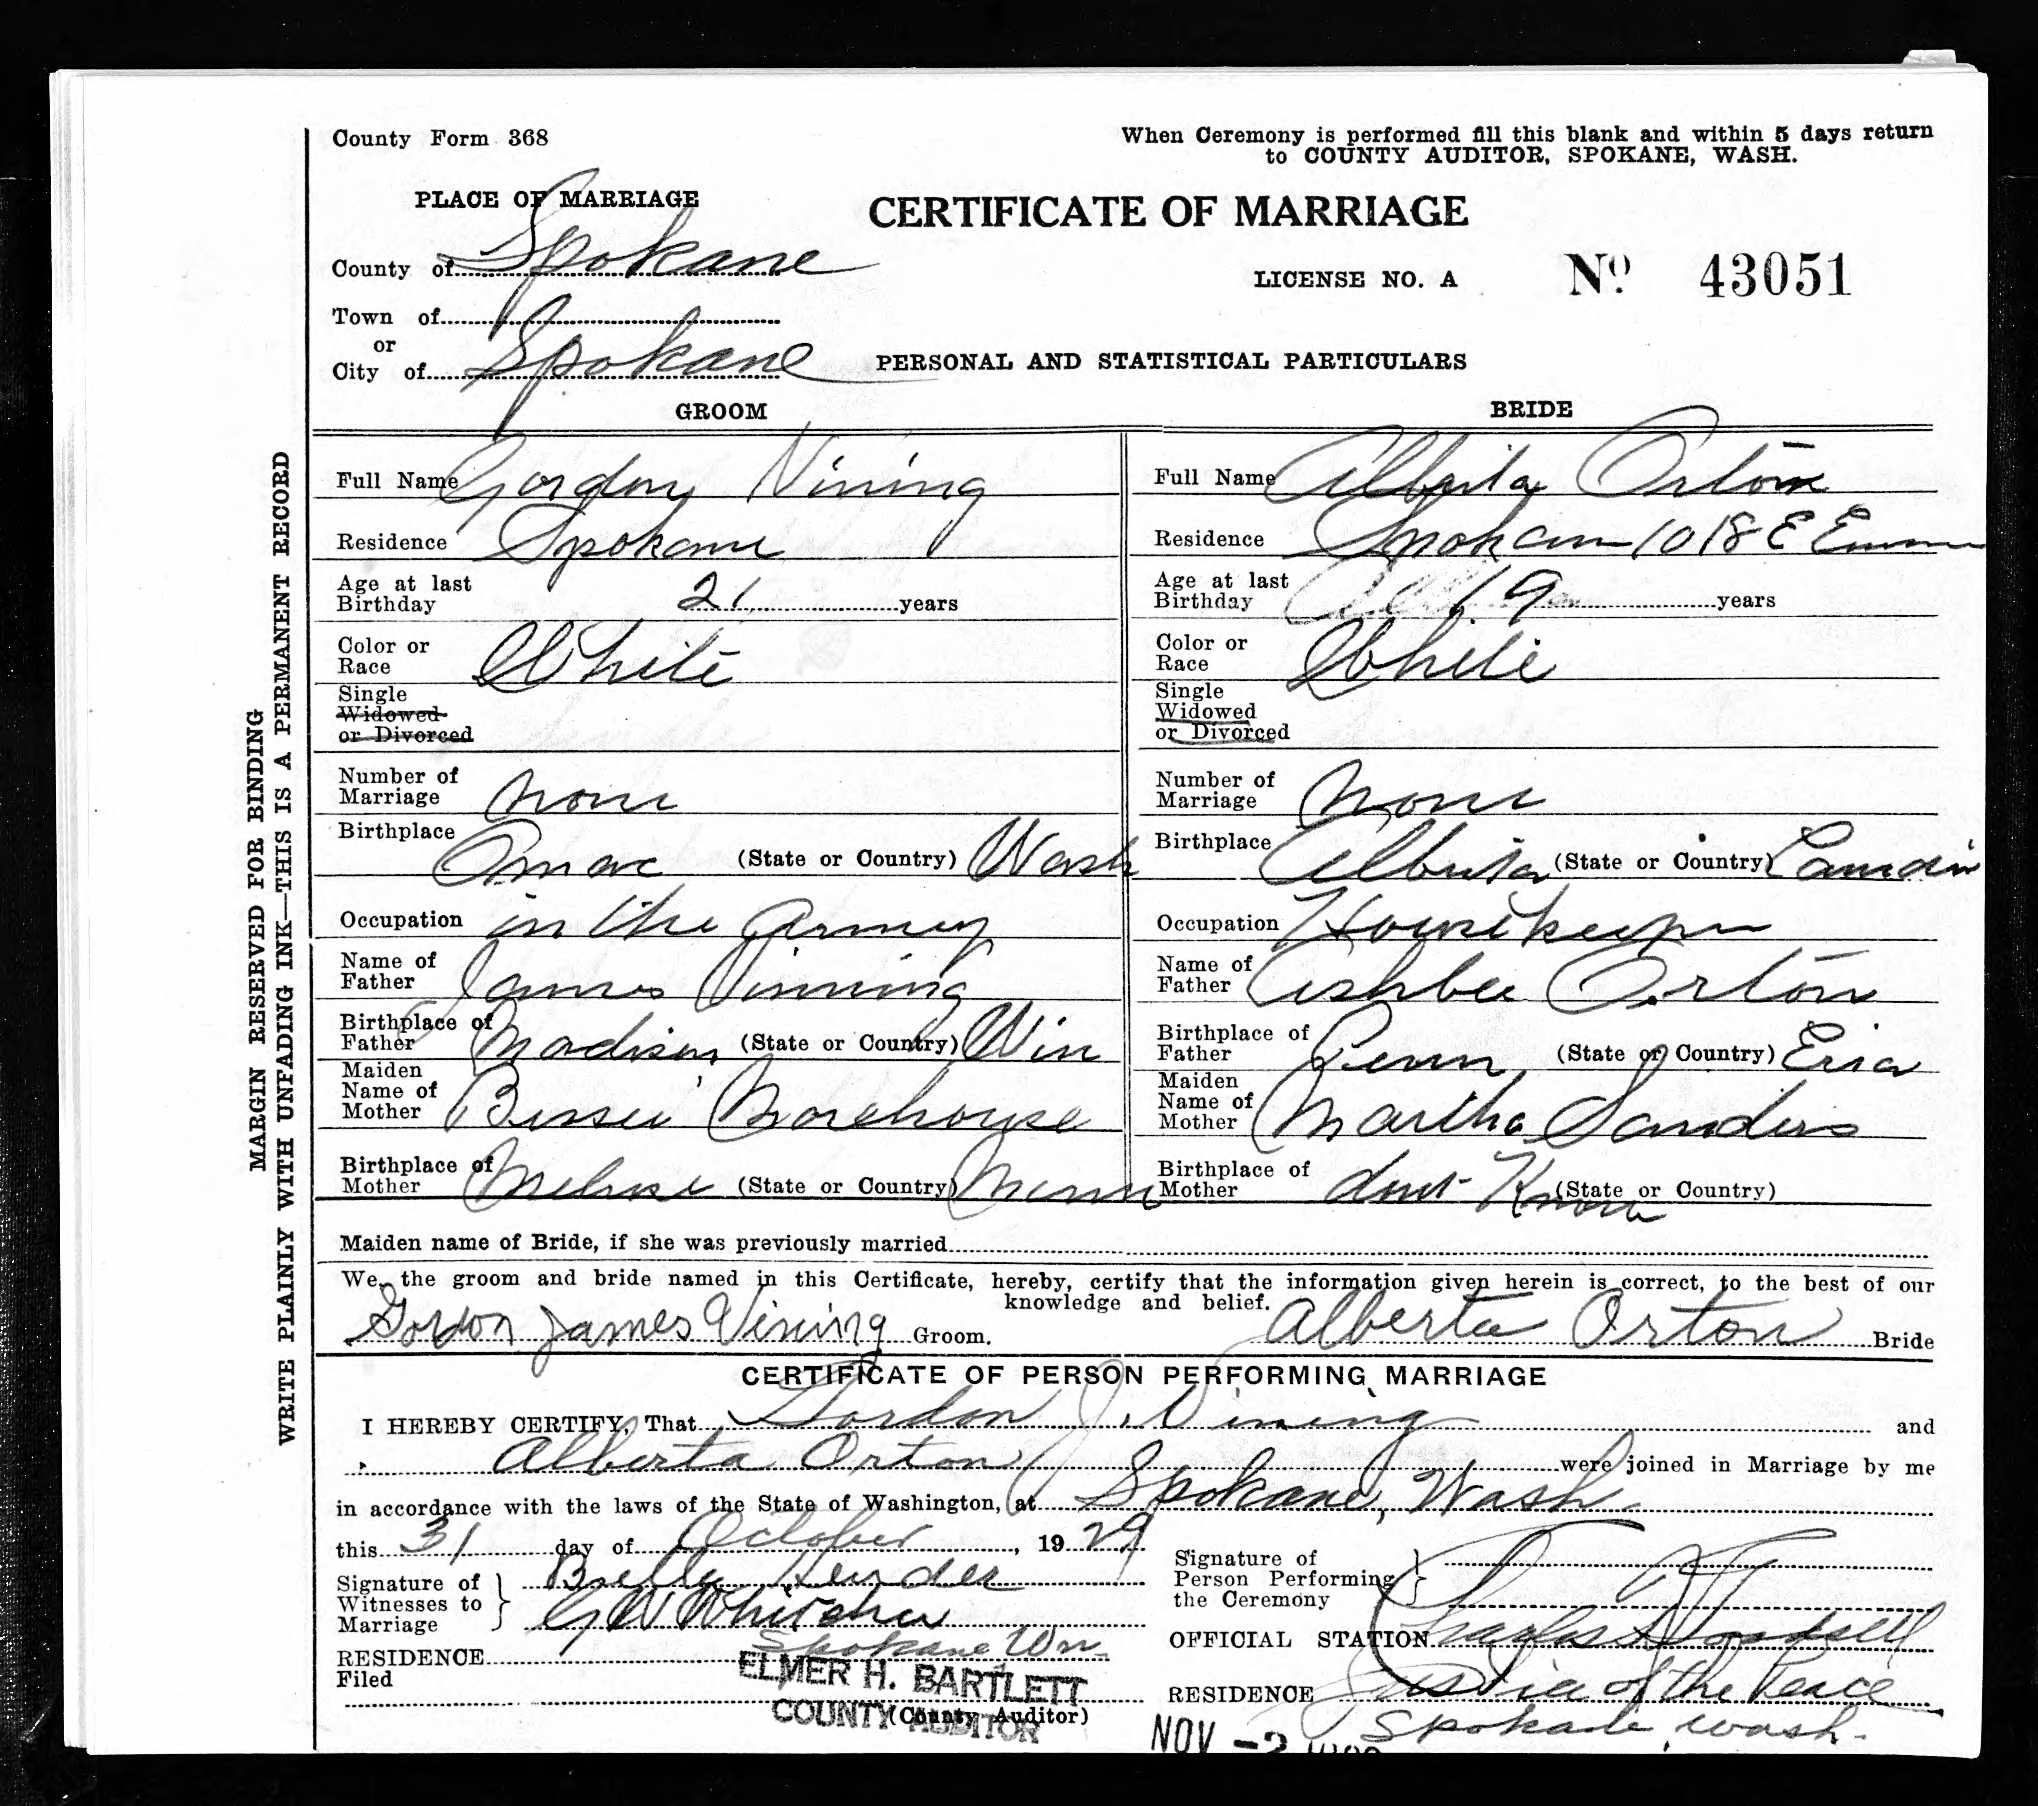 County Form 368
When Ceremony is performed fill this blank and within 5 days return
to COUNTY AUDITOR, SPOKANE, WASH.
PLACE OF MARRIAGE
CERTIFICATE OF MARRIAGE
County of Spokane
LICENSE NO. A No 43051
Town of
or
City of Spokane
PERSONAL AND STATISTICAL PARTICULARS
GROOM
Full Name Gordon Vining
Residence Spokane
Age at last Birthday 21 years
Color or Race White
Single
Widowed
or Divorced
Number of Marriage None
Birthplace Omac (State or Country) Wash
Occupation in the Army
Name of Father James Vinning
Birthplace of Father Madison (State or Country) Win
Maiden Name of Mother Bessie Morehouse
Birthplace of Mother Melrose (State or Country) Minn
BRIDE
Full Name Alberta Orton
Residence Spokane 1018 E
Age at last Birthday 19 years
Color or Race White
Single
Widowed
or Divorced
Number of Marriage None
Birthplace Alberta (State or Country)
Occupation Housekeeper
Name of Father Ashbee Orton
Birthplace of Father Penn (State or Country) Eria
Maiden Name of Mother Martha Sanders
Birthplace of Mother dont Know (State or Country)
Maiden name of Bride, if she was previously married
We, the groom and bride named in this Certificate, hereby, certify that the information given herein is correct, to the best of our
knowledge and belief.
Gordon James Vining Groom.
Alberta Orton Bride
CERTIFICATE OF PERSON PERFORMING MARRIAGE
I HEREBY CERTIFY, That Gordon J. Vining and
Alberta Orton were joined in Marriage by me
in accordance with the laws of the State of Washington, at Spokane, Wash.
this 31 day of October, 1929
Signature of Witnesses to Marriage
Signature of Person Performing the Ceremony
OFFICIAL STATION Charles
RESIDENCE Spokane Wn
RESIDENCE Justice of the Peace
Spokane, Wash.
Filed
ELMER H. BARTLETT
COUNTY AUDITOR
(County Auditor)
NOV -2
MARGIN RESERVED FOR BINDING
WRITE PLAINLY WITH UNFADING INK—THIS IS A PERMANENT RECORD